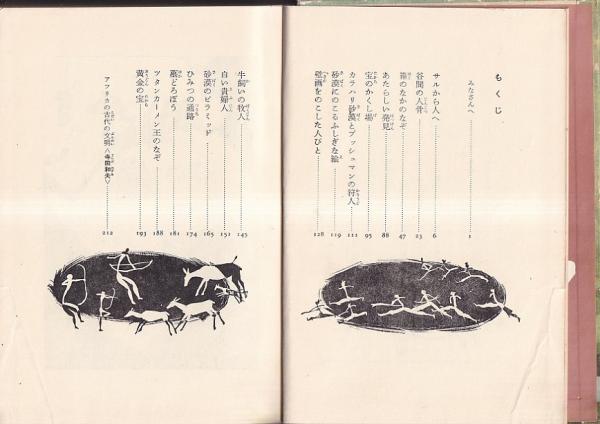 もくじ
みなさんへ 1
サルから人へ 6
谷間の人骨 23
箱のなかのなぞ 47
あたらしい発見 88
宝のかくし場 95
カラハリ砂漠とブッシュマンの狩人 111
砂漠にのこるふしぎな絵 119
壁画をのこした人びと 128
牛飼いの牧人 145
白い貴婦人 151
砂漠のピラミッド 165
ひみつの通路 174
墓どろぼう 181
ツタンカーメン王のなぞ 188
黄金の宝 193
アフリカの古代の文明〈寺田和夫〉 212